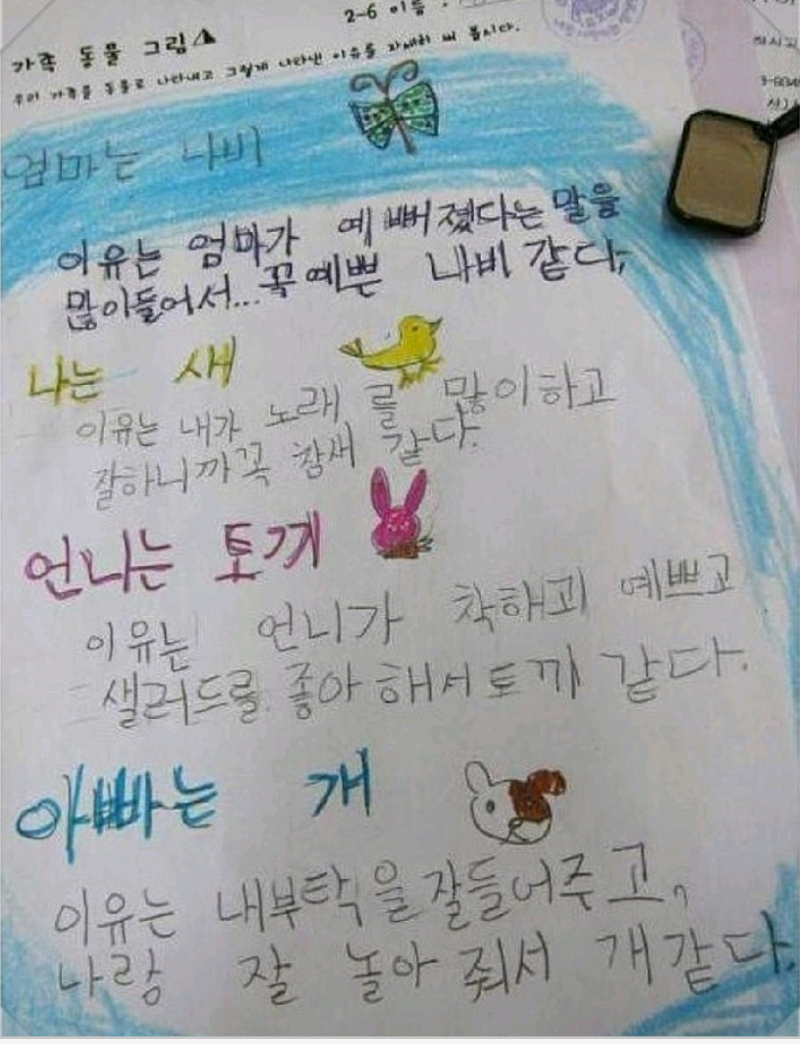 2-6 이름 :
가족 동물 그림
우리 가족을 동물로 나타내고 그렇게 나타낸 이유를 자세히 써 봅시다.
엄마는 나비
이유는 엄마가 예뻐졌다는 말을
많이들어서...꼭예쁜 나비 같다,
나는 새
이유는 내가 노래 를 많이하고
잘하니까꼭 참새 같다.
언니는 토끼
이유는 언니가 착해고 예쁘고
샐러드를 좋아해서토끼 같다.
아빠는 개
이유는 내부탁을 잘들어주고,
나랑 잘 놀아 줘서 개같다.